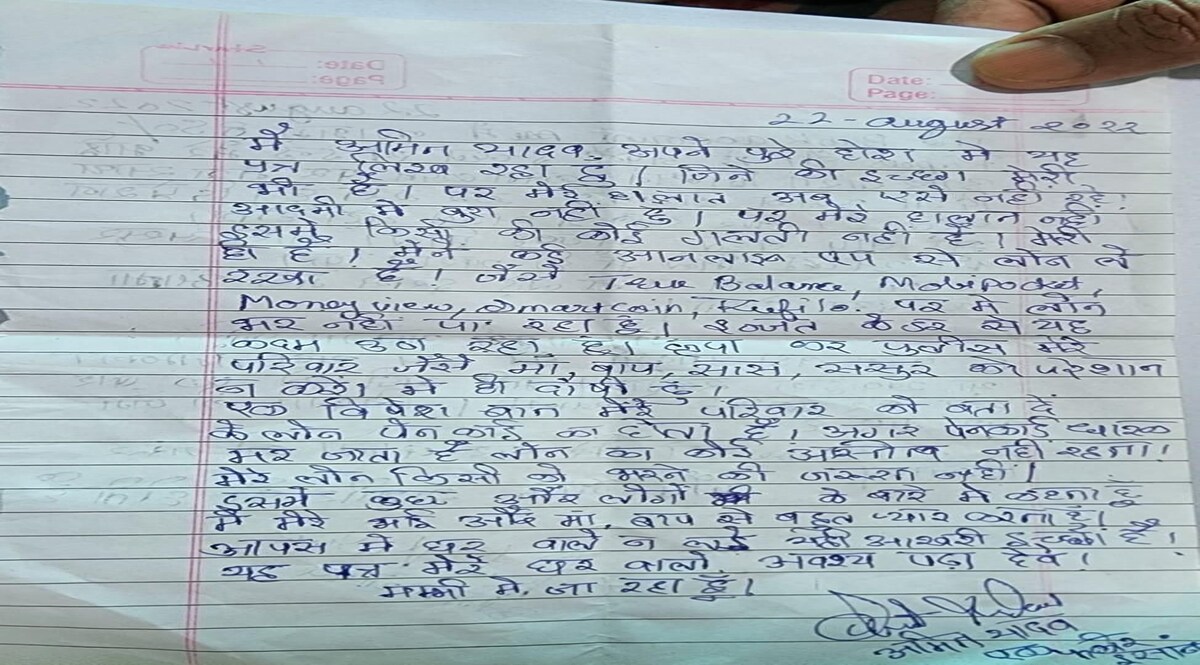 Date:
Page:
22-august 2022
मैं अमित यादव. अपने पुरे होश मे यह
पत्र लिख रहा हु। जिने की इच्छा मेरी
भी है। पर मेरे हालात अब एसे नही रहे!
आदमी मे बुरा नही हु। पर मेरे हालात नही।
इसमे किसी की कोई गलती नही है। मेरी
ही है। मेने कई आनलाइन एप से लोन ले
रखा है! जैसे True Balance, Mobipocket,
Money view, smartcoin, Rufilo. पर मे लोन
भर नही पा रहा हु। इज्जत के डर से यह
कदम उठा रहा हु। कृपा कर पुलीस मेरे
परिवार जैसे माँ, बाप, सास, ससुर का परेशान
न करे। मे ही दोषी हु।
एक विषेश बात मेरे परिवार को बता दे
के लोन पेनकार्ड का होता है। अगर पेनकार्ड धारक
मर जाता है लोन का कोई अस्तीत्व नही रहता!
मेरे लोन किसी को भरने की जरूरत नही।
इसमे कुछ और लोगो के बारे मे कहना हु
मै मेरे भाई और मां, बाप से बहुत प्यार करता हु।
आपस मे घर वाले न लड़े यही आखरी इच्छा है।
यह पत्र मेरे घर वालो. अवश्य पढ़ा देवे!
मम्मी मे. जा रहा हुँ।
अमित यादव